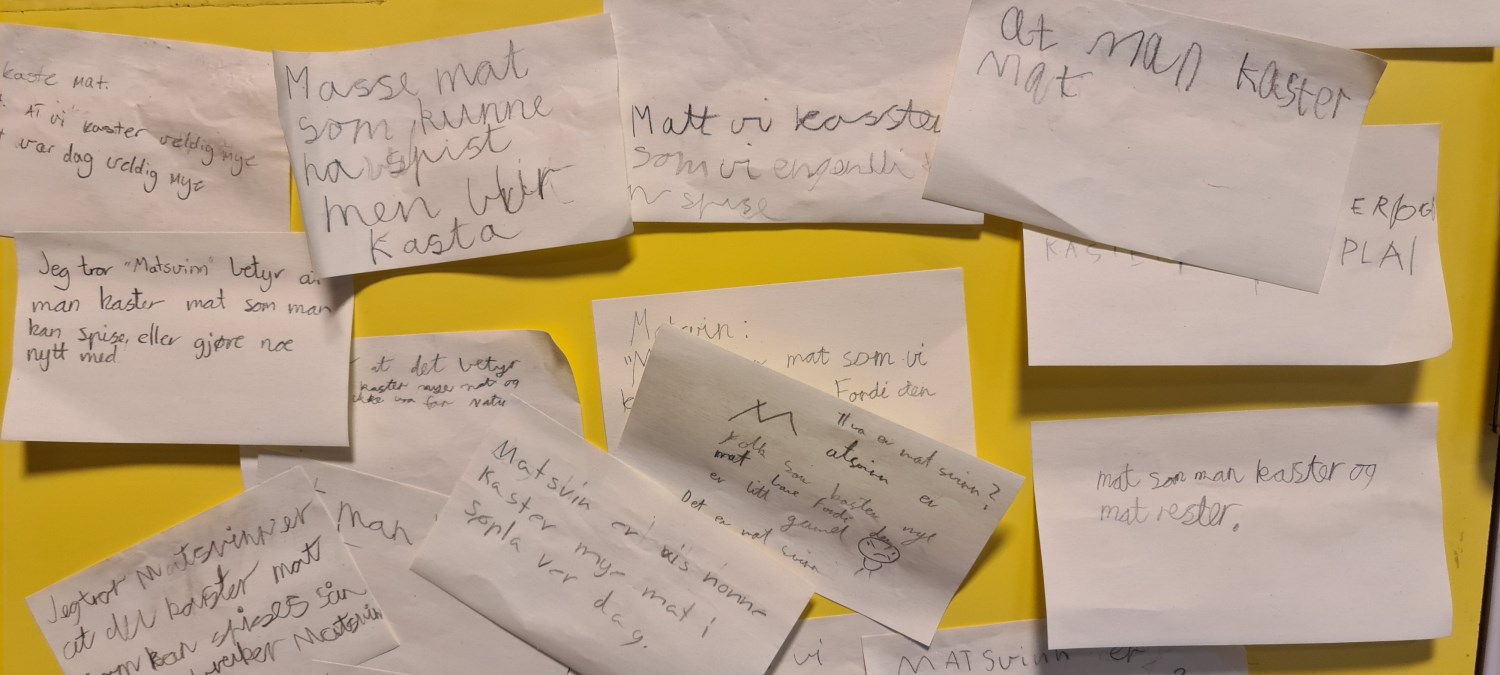 kaste mat.
At vi kaster veldig mye
vær dag veldig mye
Masse mat
som kunne
ha spist
men blir
kasta
Matt vi kasster
som vi engenlli
spise
at man kaster
mat
ERFOR
KAST
PLA
Jeg tror "Matsvinn" betyr at
man kaster mat som man
kan spise, eller gjøre noe
nytt med
at det betyr
kaster mye mat og
ikke bra for natu
Matsvin:
mat som vi
Fordi den
Hva er mat svinn?
atsvinn er
folk som kaster mye
mat bare fordi den
er litt gamel
Det er mat svinn
mat som man kaster og
mat rester.
Matsvin er vis nonne
kaster mye mat i
søpla ver dag.
Man
Jeg tror Matsvinn er
at del kaster mat
som kan spises sån
bruker Matsvin
vi
MATSvinn er